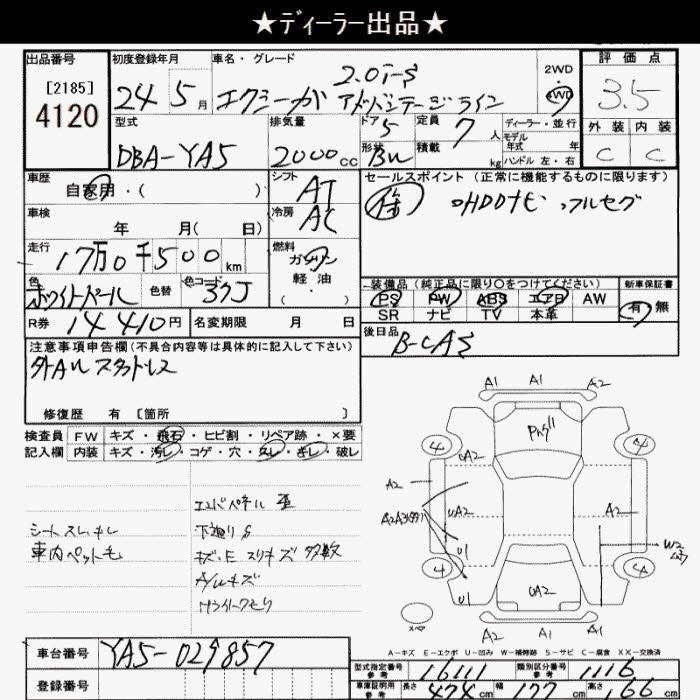 ★ディーラー出品★
出品番号
[2185]
4120
初度登録年月
24 5月
車名・グレード
2.0i-S
エクシーガ アドバンテージライン
2WD
・
4WD
評価点
3.5
外装 内装
C C
型式
DBA-YA5
排気量
2000cc
ドア
5
形状
BW
定員
7人
積載
kg
ディーラー・並行
モデル
年式 年
ハンドル 左・右
車歴
自家用・( )
シフト
AT
冷房
AC
車検
年 月( 日)
走行
17万0千500km
燃料
ガソリン
軽油
・( )
色
ホワイトパール
色替
色コード
37J
R券 14410円
名変期限 月 日
セールスポイント(正常に機能するものに限ります)
HDDナビ フルセグ
装備品(純正品に限り○をつけてください)
PS PW ABS エアB AW
SR ナビ TV 本革
新車保証書
有 無
後日品
B-CAS
注意事項申告欄(不具合内容等は具体的に記入して下さい)
外AW スタッドレス
修復歴 有[箇所 ]
検査員
記入欄
FW キズ・飛石・ヒビ割・リペア跡・×要
内装 キズ・汚レ・コゲ・穴・スレ・キレ・破レ
シートスレ、キレ
車内ペット毛
エンドパネル歪
下廻りS
キズ・E スリキズ多数
A/Wキズ
Hライトクモリ
A1 A1 A2
4 4
UA2
A2
UA2
U1
A2
W2
4 4
U1
UA2
スペア
A2 A1 A1
A-キズ E-エクボ U-凹み W-補修跡 S-サビ C-腐食 XX-交換済
車台番号 YA5-029857
登録番号
型式指定番号
参考
16111
類別区分番号
参考
1116
車庫証明用
参考
長さ 474cm 幅 177cm 高さ 166cm